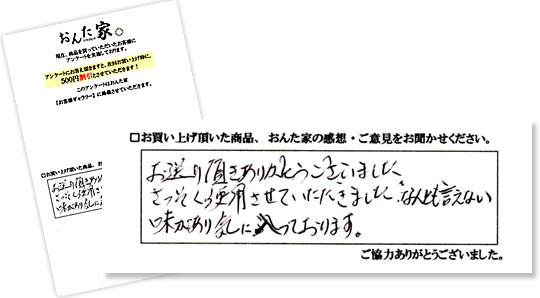 おんた家。
現在、商品を買っていただいたお客様に
アンケートを実施しております。
アンケートにお答え頂きますと、次回お買い上げ時に、
500円割引とさせていただきます！
このアンケートはおんた家
【お客様ギャラリー】に掲載させていただきます。
□お買い上げ頂いた商品、お
お送り頂きありが
さっそく使用さ
味があり気に入
□お買い上げ頂いた商品、おんた家の感想・ご意見をお聞かせください。
お送り頂きありがとうございました、
さっそく使用させていただきました。なんとも言えない
味があり気に入っております。
ご協力ありがとうございました。